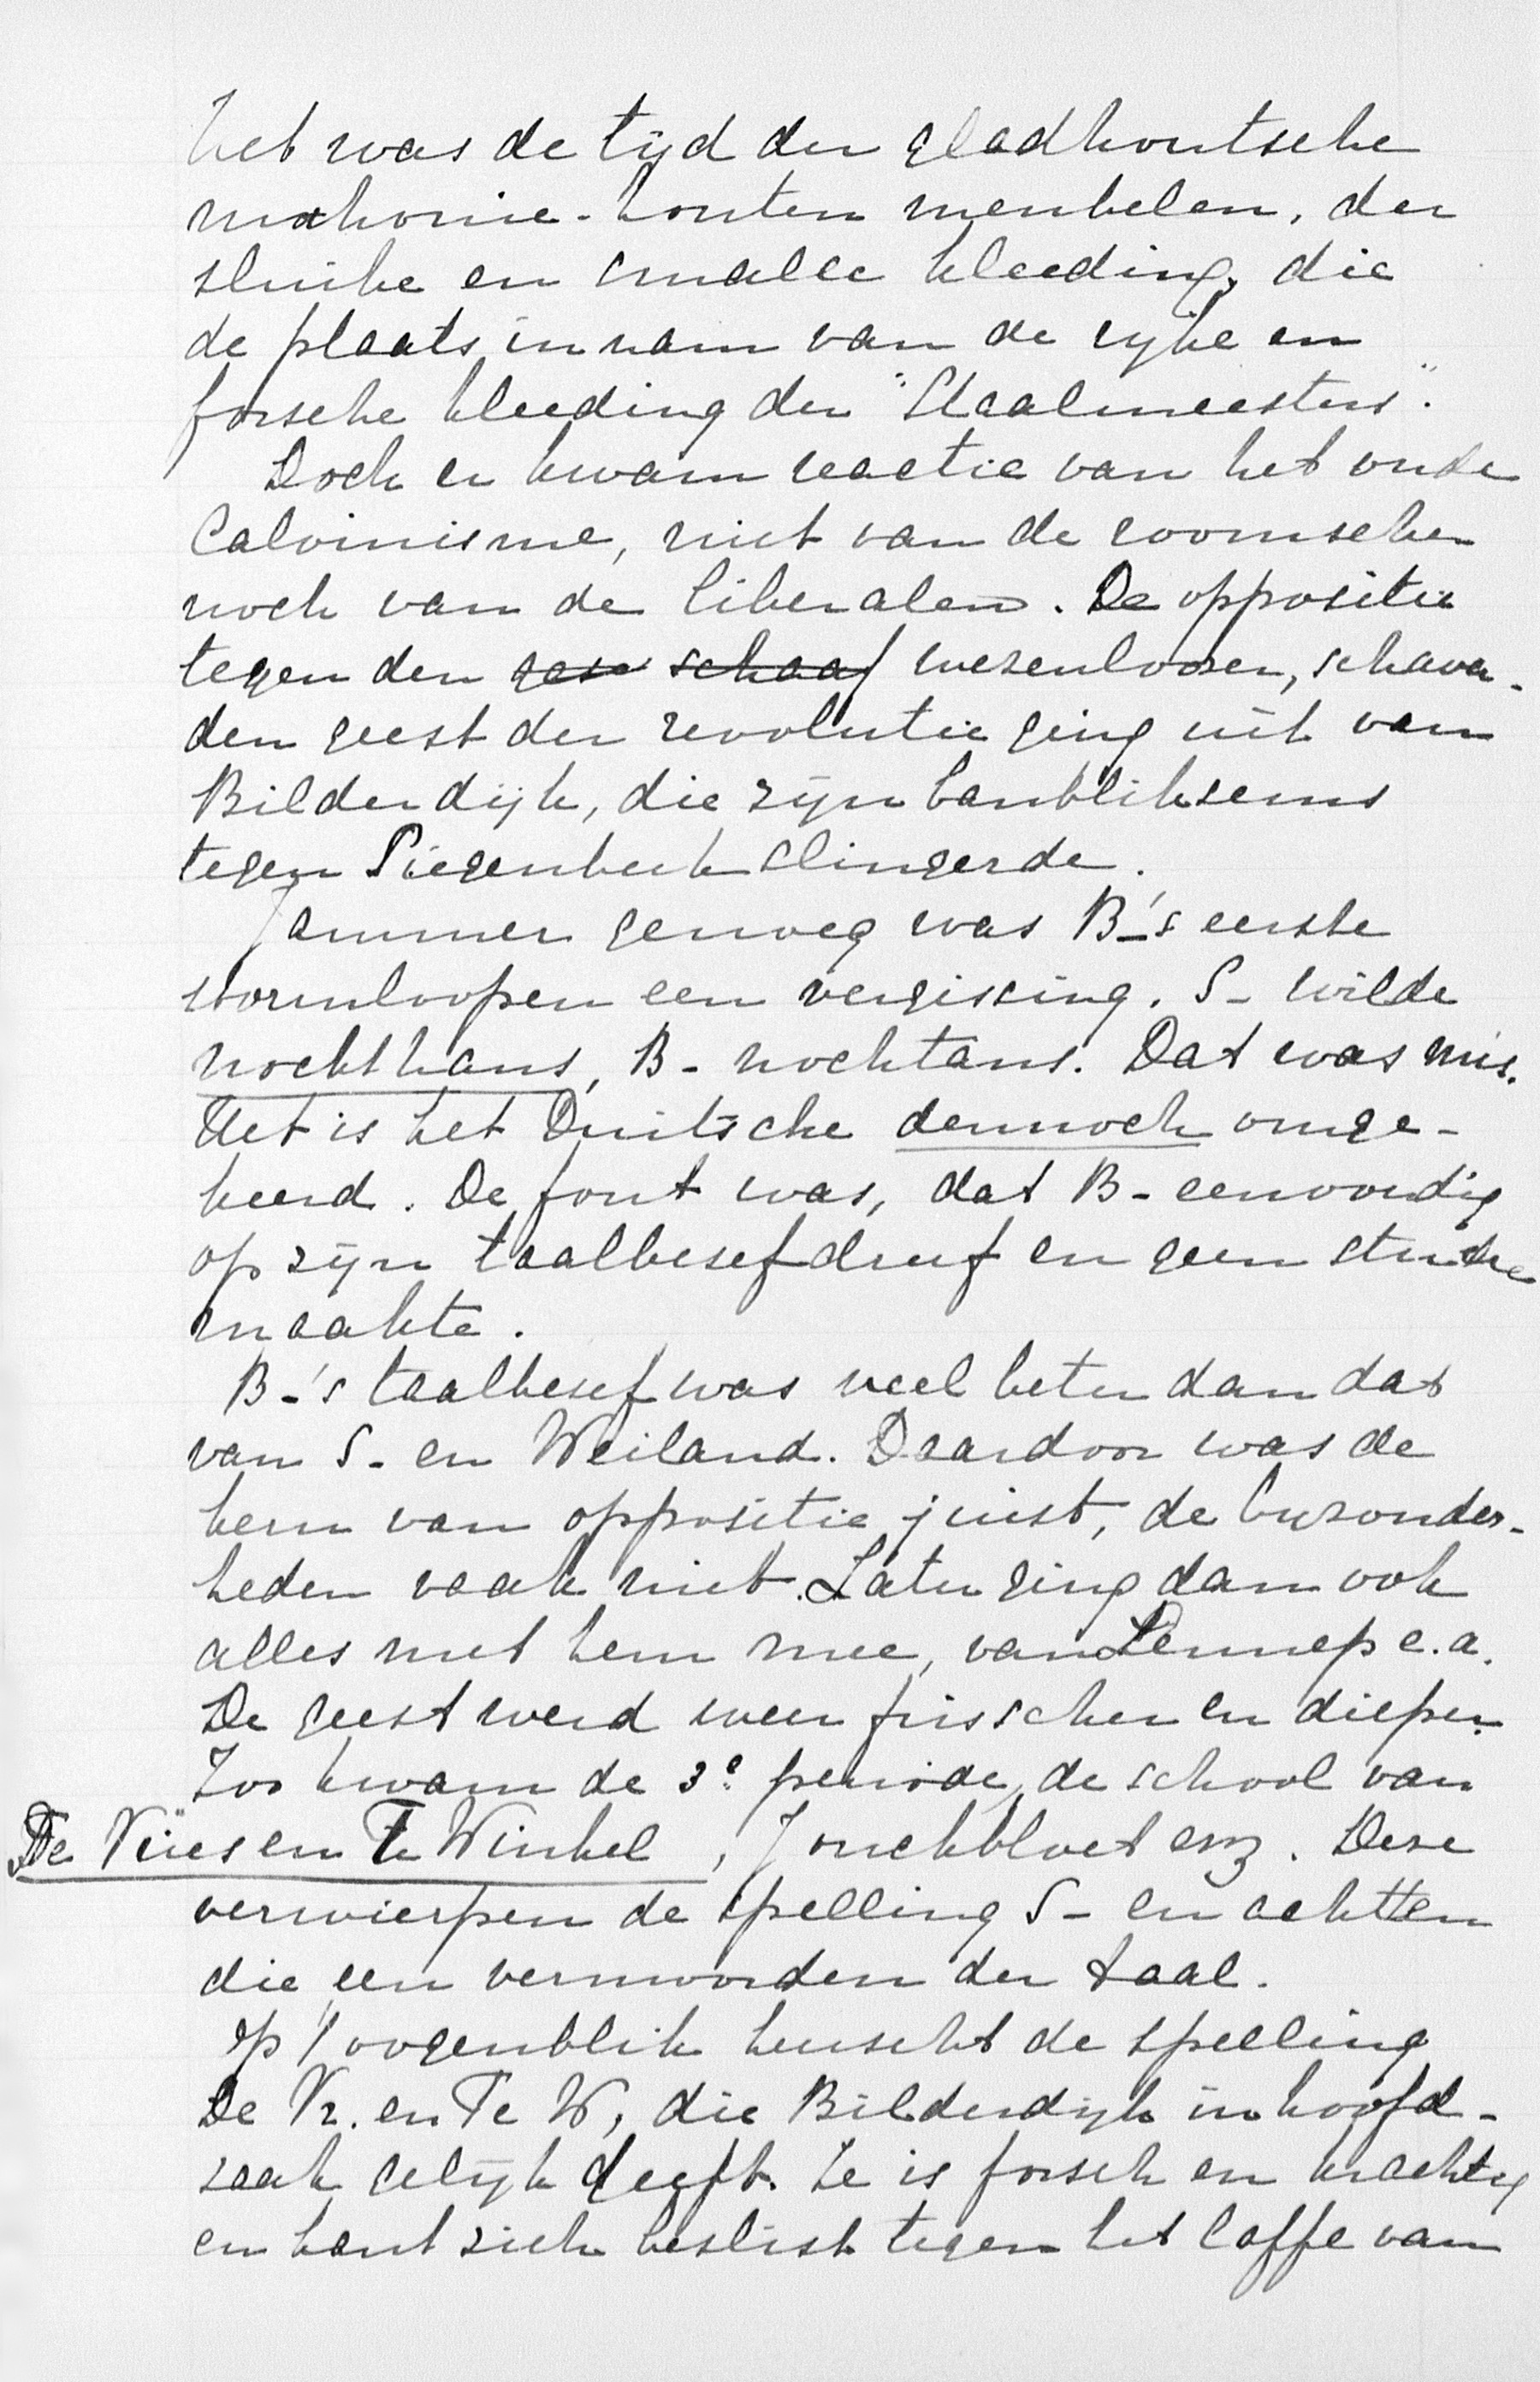 Het was de tijd der gladhoutsche
mahonie-houten meubelen, der
sluike en smalle kleeding, die
de plaats innam van de rijke en
forsche kleeding der "Staalmeesters".
Doch er kwam reactie van het oude
Calvinisme, niet van de roomschen
noch van de liberalen. De oppositie
tegen den schaaf wezenloozen, schaven-
den geest der revolutie ging uit van
Bilderdijk, die zijn banbliksems
tegen Siegenbeek slingerde.
Jammer genoeg was B-'s eerste
stormloopen een vergissing. S- wilde
nochthans, B- nochtans. Dat was mis.
Het is het Duitsche dennoch omge-
keerd. De fout was, dat B- eenvoudig
op zijn taalbesef dreef en geen studie
maakte.
B-'s taalbesef was veel beter dan dat
van S- en Weiland. Daardoor was de
kern van oppositie juist, de bijzonder-
heden vaak niet. Later ging dan ook
alles met hem mee, van Lennep e.a.
De geest werd weer frisscher en dieper.
Zoo kwam de 3e periode, de school van
De Vries en Te Winkel, Jonckbloet enz. Deze
verwierpen de spelling S- en achtten
die een vermoorden der taal.
Op 't oogenblik heerscht de spelling
De Vr. en Te W, die Bilderdijk in hoofd-
zaak gelijk geeft. Ze is forsch en krachtig
en kant zich beslist tegen het laffe van